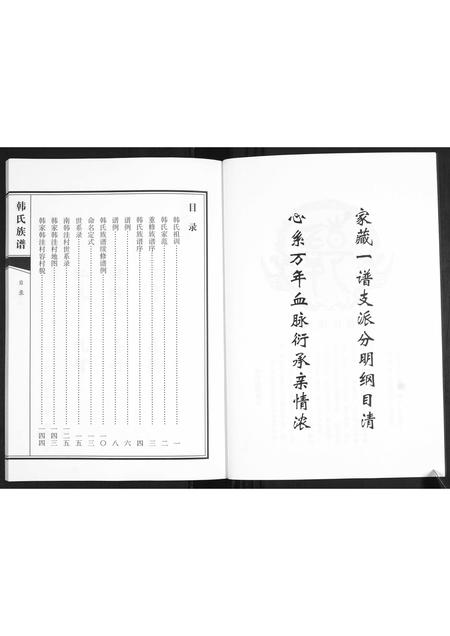 家藏一谱支派分明纲目清
心系万年血脉衍承亲情浓
韩氏族谱
目录
目录
韩氏祖训……一
韩氏家范……二
重修族谱序……三
韩氏族谱序……四
谱例……六
谱例……八
韩氏族谱续修谱例……一〇
命名定式……一三
世系录……一五
南韩洼村世系录……一二五
韩家韩洼村地图……一四三
韩家韩洼村容村貌……一四四